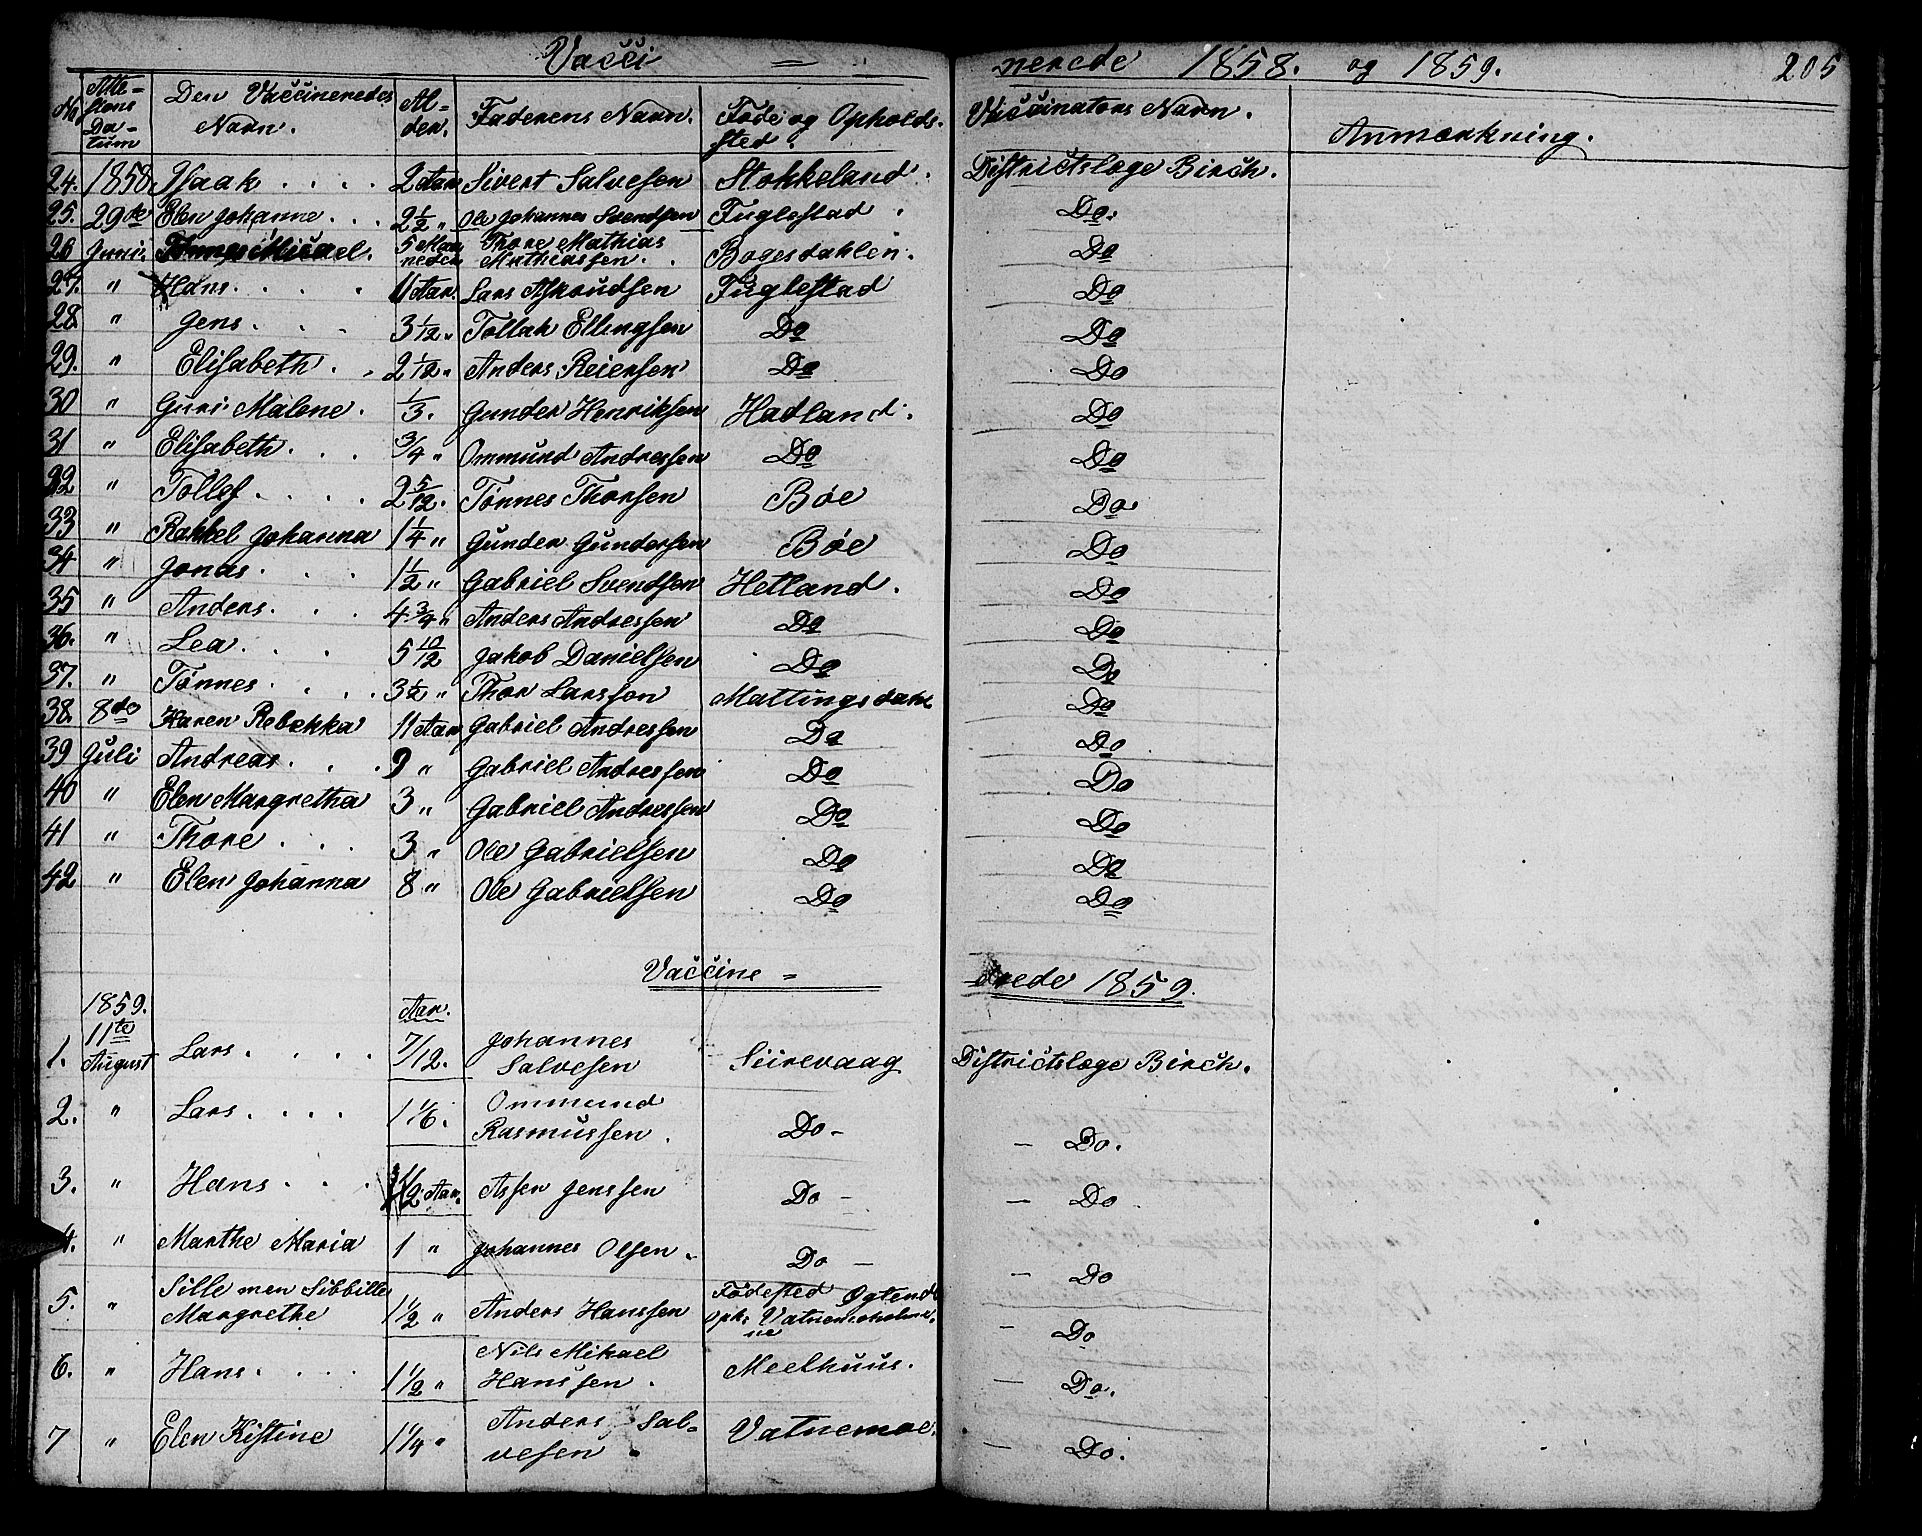 Vacci = nerede 1858. og 1859. 205
No Attestens Datum | Den Vaccineredes Navn. | Alder. | Faderens Navn. | Føde og Opholdssted. | Vaccinators Navn. | Anmærkning.
24. 1858 Isaak . . . . 2 Aar Sivert Salvesen Stokkeland. Districtslæge Birch.
25. 29de Elen Johanne . . . 2 1/2 " Ole Johannes Svendsen Fuglestad . Do.
26 Juni. Tønnes Micael. 5 Maaneder Thore Mathias Mathiassen. . Bogesdahlen. Do
27. " Hans. . . . . 11 Aar. Lars Askoudsen Fuglestad Do
28. " Jens. . . . 3 1/12 " Tollak Ellingsen Do Do
29. " Elisabeth. . . 2 1/12 " Anders Reiersen Do Do
30 " Guri Malene. 1/3. Gunder Henriksen Hadland. Do
31 " Elisabeth. . . . 3/4 " Ommund Andressen Do Do
32 " Tollef. . . . . 2 5/12. Tønnes Thorsen Bøe Do
33 " Rakkel Johanna 1 1/4 " Gunder Gundersen Bøe Do
34 " Jonas. . . . 1 1/2 " Gabriel Svendsen Hetland. Do
35 " Anders. . . . 4 3/4 " Anders Andressen Do Do
36. " Lea. . . . 5 10/12 Jakob Danielsen Do Do
37. " Tønnes. . . . . 3 1/2 " Thor Larssen Mattingsdahl Do
38. 8de Karen Rebekka 11 Aar Gabriel Andressen Do Do
39 Juli Andreas. . . . 9 " Gabriel Andressen Do Do
40 " Elen Margretha 3 " Gabriel Andressen Do Do
41 " Thore. . . . 3 " Ole Gabrielsen Do Do
42 " Elen Johanna 8 " Ole Gabrielsen Do Do
Vaccine = rede 1859.
1859. Aar.
1. 11te August Lars. . . . . 7/12. Johannes Salvesen Seirevaag Districtslæge Birch.
2. " Lars. . . . . 1 1/6. Ommund Rasmussen. Do - - Do.
3. " Hans. . . . 1/2 Aar. Assen Jenssen Do - - Do
4. " Marthe Maria 1 " Johannes Olsen. Do - - Do
5. " Sille men Sibbille Margrethe 1 1/2 " Anders Hanssen Fødested Ogtend Oph: - Do
6. " Hans. . . . . 1 1/2 " Nils Mikael Hanssen. Meelhuus. - Do.
7 " Elen Kistine 1 1/4 " Anders Salvesen. Vatnemoe. - Do.